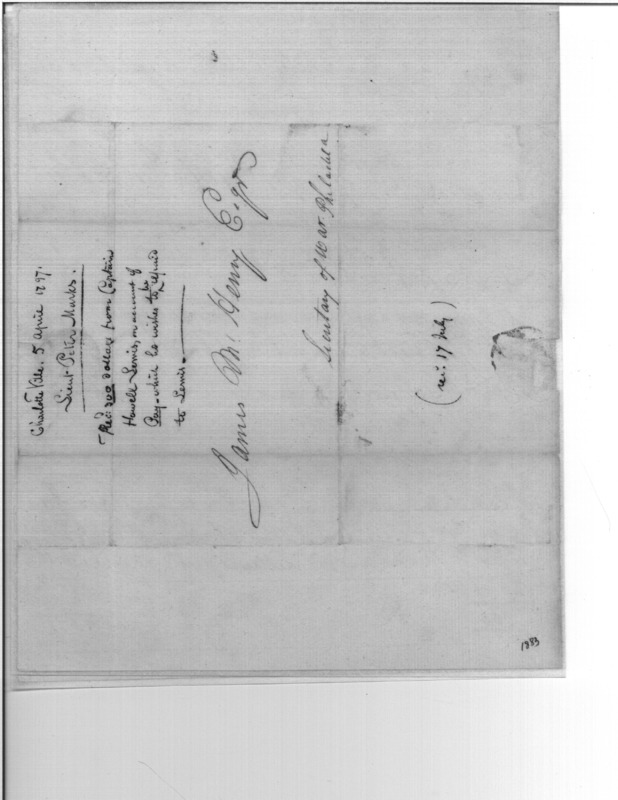 Charlotte Ville. 5 April 1797.
Lieut Peter Marks.
Rec: 200 dollars from Captain
Howell Lewis, on account of
Pay - which he wishes to be repaid
to Lewis.
James Mc. Henry Esqr
Secretary of War Philadela
(rec: 17 July)
1883